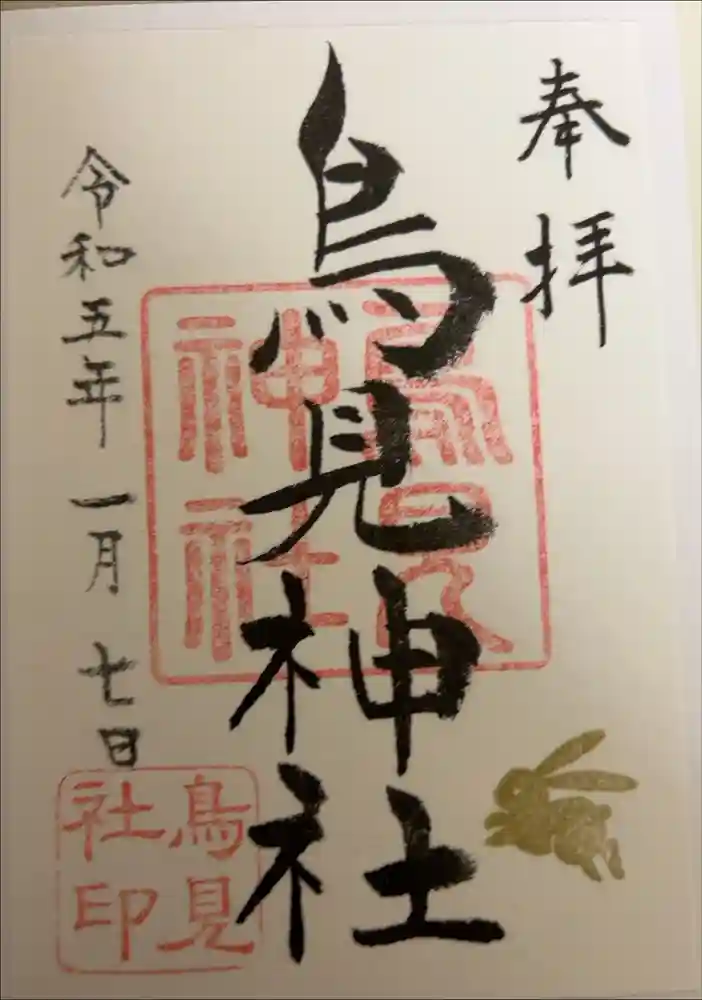 奉拝
鳥見神社
鳥見神社
令和五年一月七日
鳥見社印